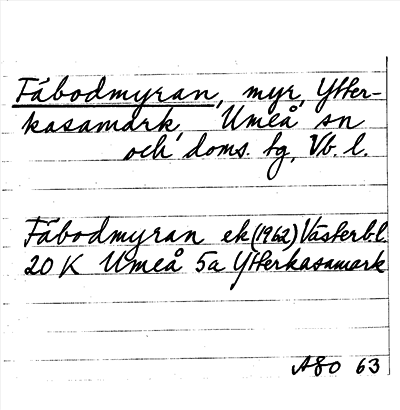 Fäbodmyran, myr, Ytter-
kasamark, Umeå sn
och doms. tg, Vb. l.
Fäbodmyran ek (1962) Västerb l.
20 K Umeå 5a Ytterkasamark
ASO 63